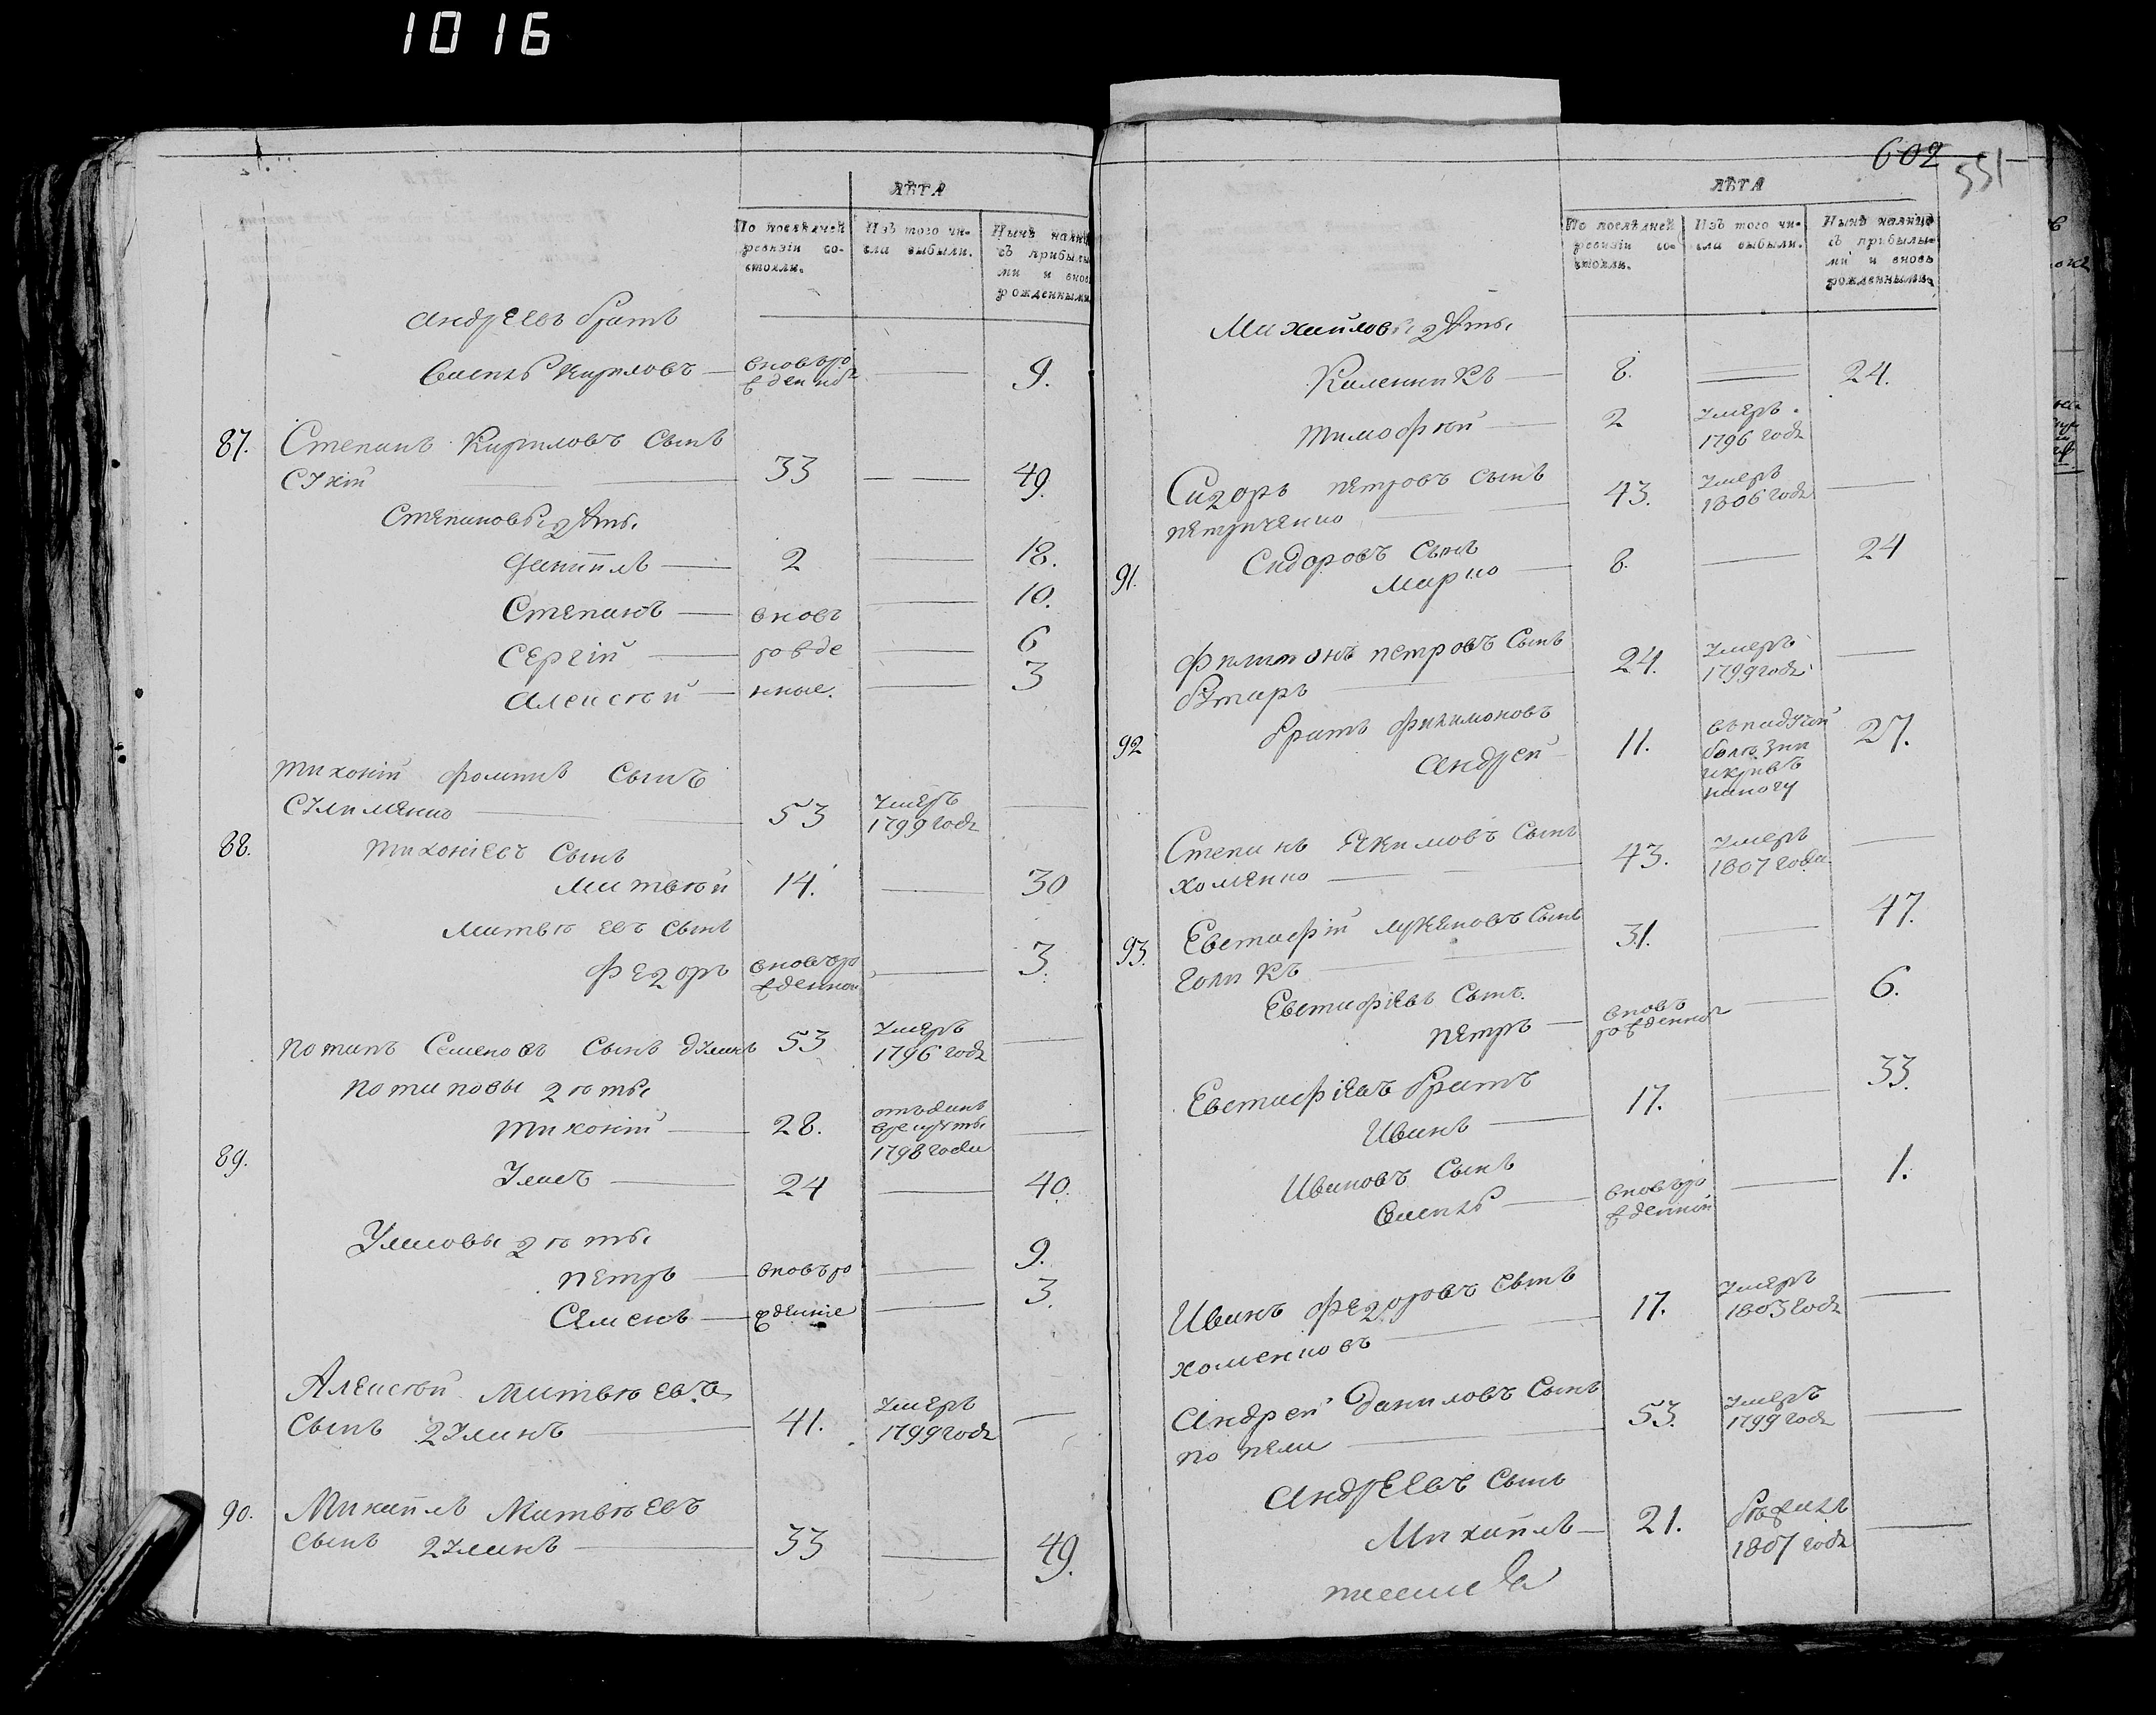 1016
ЛѢТА
По послѣдней
ревизіи со-
стояли.
Изъ того чи-
сла выбыли.
Нынѣ налиц
съ прибылы
ми и внов
рожденными
андреевъ братъ
Кириловъ
вновьро
жденной
9.
87. Степанъ Кириловъ сынъ
33 — — 49.
Степановы дѣти
2 — 18.
Степанъ — вновь — 10.
Сергій — рожде — 6
Алексѣй — нные. — 3
тихоній фоминъ сынъ
53 умеръ
1799 годѣ
88. тихоніевъ сынъ
матвѣй 14. — 30
матвѣевъ сынъ
федоръ вновьро
жденной — 3.
потапъ Семеновъ сынъ думинъ 53 умеръ
1796 годѣ
потаповы дѣти
тихоній — 28. отъданъ
врекруты
1798 года
89. Уласъ — 24 — 40.
Уласовы дѣти
петръ — вновьро — 9.
Семенъ — жденніе — 3.
Алексѣй матвѣевъ
сынъ думинъ — 41. умеръ
1799 годѣ
90. Михайлъ Матвѣевъ
сынъ думинъ — 33 — 49.
602
551
ЛѢТА
По послѣдней
ревизіи со-
стояли.
Изъ того чи-
сла выбыли.
Нынѣ налицо
съ прибылы-
ми и вновь
рожденными.
Михайловы дѣти
Каленикъ — 8. — 24.
тимофѣй — 2 умеръ
1796 годѣ
Сидоръ петровъ сынъ
петриченко — 43. умеръ
1806 годѣ
91. Сидоровъ сынъ
марко — 8. — 24
филимонъ петровъ сынъ
24. умеръ
1799 годѣ
92 братъ филимоновъ
андрей 11. въпадучей
болѣзни
икривъ
наногу
27.
Степанъ Якимовъ сынъ
хоменко — 43. умеръ
1807 года
93. Евстафій лукяновъ сынъ
голикъ — 31. — 47.
Евстафіевъ сынъ
петръ — вновь
рожденной — 6.
Евстафіевъ братъ
Иванъ — 17. — 33.
Ивановъ сынъ
вновьро
жденной — 1.
Иванъ федоровъ сынъ
хоменковъ — 17. умеръ
1803 годѣ
андрей даниловъ сынъ
53. умеръ
1799 годѣ
андреевъ сынъ
Михайлъ — 21. бѣжалъ
1807 годѣ